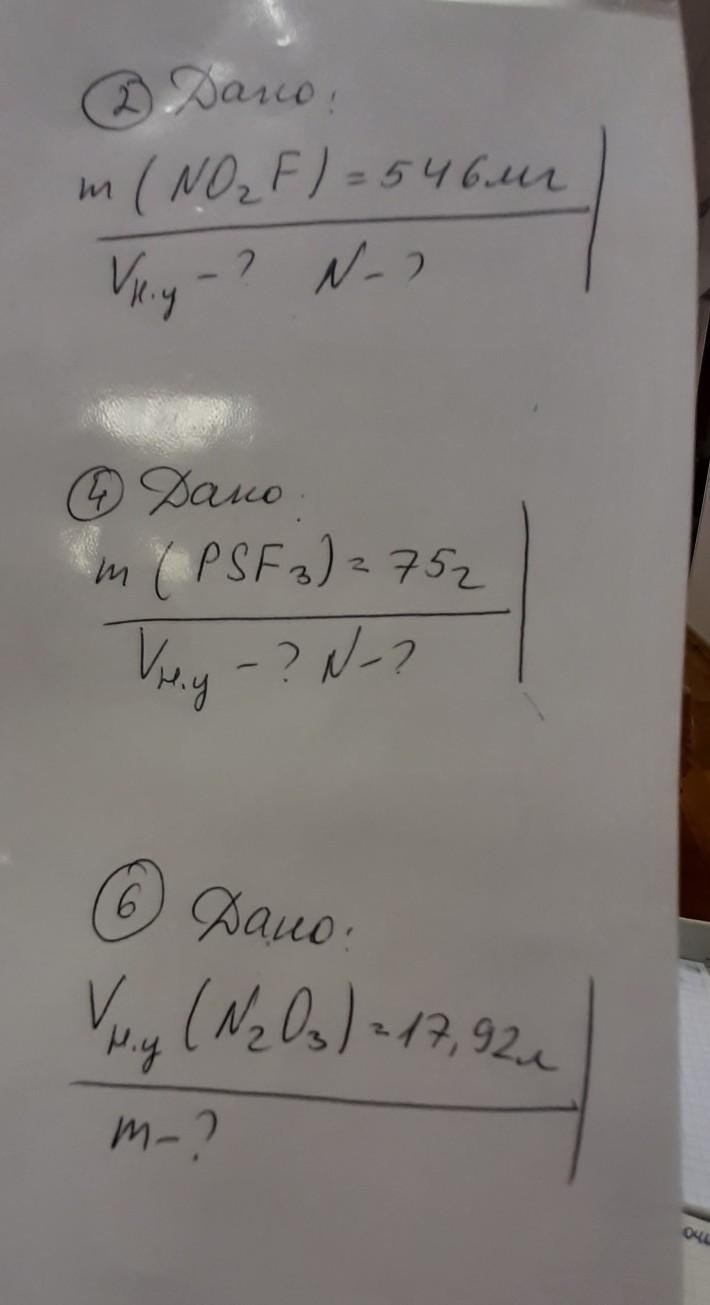 ② Дано:
m (NO₂F) = 546мг
Vн.у - ? N - ?
④ Дано:
m (PSF₃) = 75г
Vн.у - ? N - ?
⑥ Дано:
Vн.у (N₂O₃) = 17,92л
m - ?